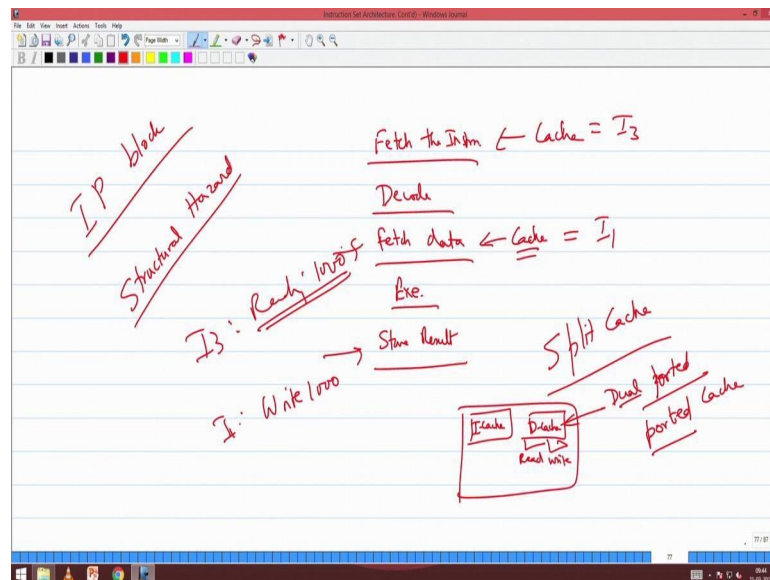 Instruction Set Architecture. Cont(d) - Windows Journal
File Edit View Insert Actions Tools Help
Page Width
B I
IP block
Structural Hazard
Fetch the Instrn ← Cache = I3
Decode
Fetch data ← Cache = I1
Exe.
Store Result
I3: Ready: 1000
I: Write 1000
Split Cache
Dual ported
ported Cache
I-Cache D-Cache
Read Write
77 / 87
77
09:44